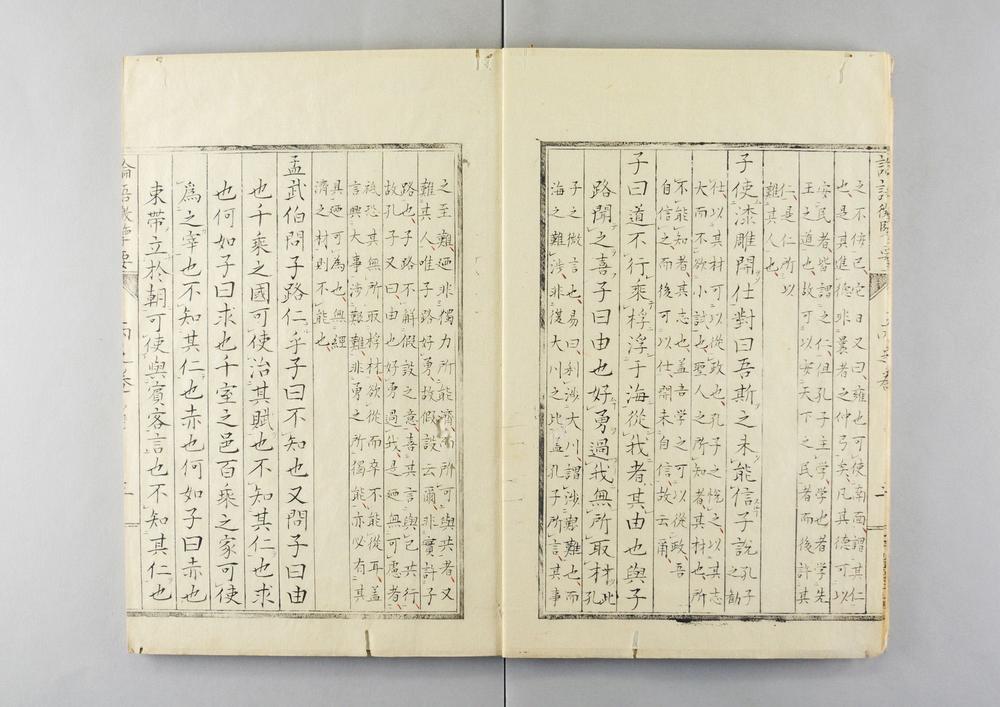 之不佞已、它日又曰雍也可使南面、謂其仁
也、是其進德非曩者之仲弓矣、凡其德可以
安民者、皆謂之仁、但孔子主學、學也者學先
王之道也、故可以安天下之民者而後許其
仁、是仁所以
難其人也
子使漆雕開仕對曰吾斯之未能信子說孔子之勸
仕、以其材可以從政也、孔子之悅之、以其志
大而不欲小試也、聖人之所知者其材也、所
不能知者、其志也、蓋吾學之可以從政、吾
自信之而後可以仕、開未自信、故云爾
子曰道不行乘桴浮于海從我者其由也與子
路聞之喜子曰由也好勇過我無所取材此孔
子之微言也、易曰利涉大川、謂涉艱難也、而
海之難涉、非從大川之比、孟孔子所言、其事
之至難廼非獨力所能濟、而所可與共者、又
難其人、唯子路好勇、故假設云爾、非實計子
路也、子路不解假設之意、喜其言與己共行
故孔子又曰、由也好勇過我、是廼無可慮者
被恐其無所取桴材、欲從而卒不能從耳、蓋
言興大事涉艱難、非勇之所獨能、亦必有其
具廼可為也、無經
濟之材則不能也
孟武伯問子路仁乎子曰不知也又問子曰由
也千乘之國可使治其賦也不知其仁也求
也何如子曰求也千室之邑百乘之家可使
爲之宰也不知其仁也赤也何如子曰赤也
束帶立於朝可使與賓客言也不知其仁也